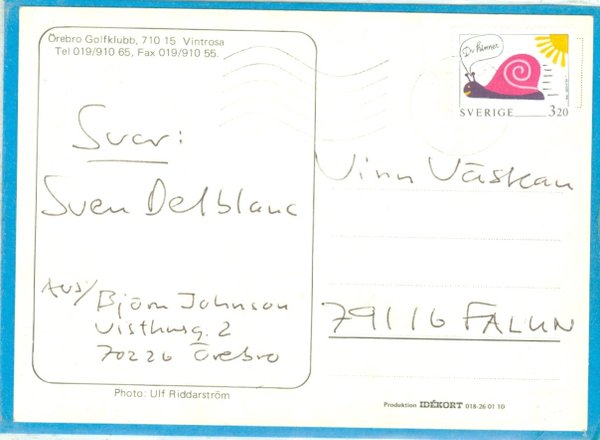 Örebro Golfklubb, 710 15 Vintrosa
Tel 019/910 65, Fax 019/910 55.
Du hinner
SVERIGE 3,20
Svar:
Sven Delblanc
Avs/ Björn Johnson
Visthusg. 2
70226 Örebro
Vinn Väskan
79116 FALUN
Photo: Ulf Riddarström
Produktion IDÉKORT 018-26 01 10